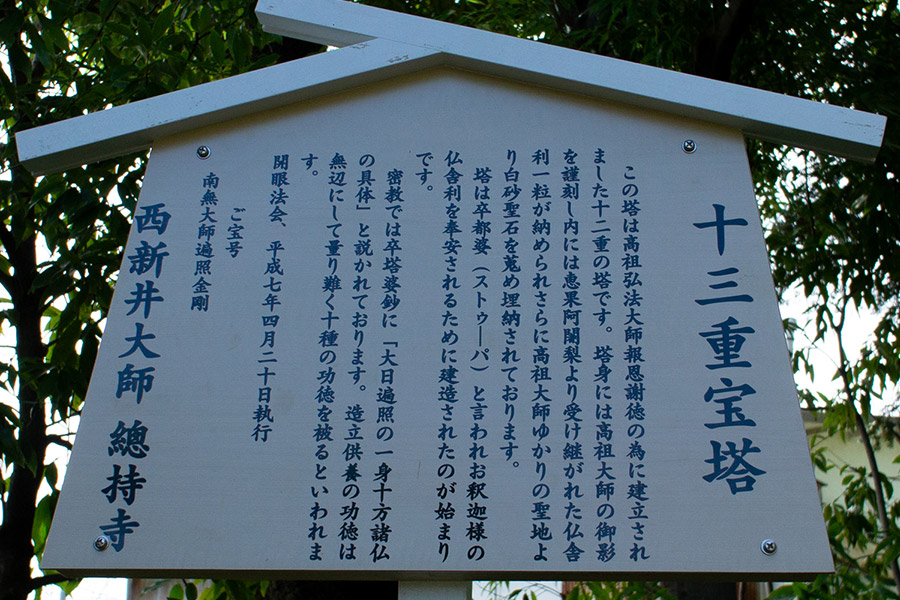 十三重宝塔
この塔は高祖弘法大師報恩謝徳の為に建立され
ました十三重の塔です。塔身には高祖大師の御影
を謹刻し内には恵果阿闍梨より受け継がれた仏舎
利一粒が納められさらに高祖大師ゆかりの聖地よ
り白砂聖石を蒐め埋納されております。
塔は卒都婆（ストゥーパ）と言われお釈迦様の
仏舎利を奉安されるために建造されたのが始まり
です。
密教では卒塔婆鈔に「大日遍照の一身十方諸仏
の具体」と説かれております。造立供養の功徳は
無辺にして量り難く十種の功徳を被るといわれま
す。
開眼法会、平成七年四月二十日執行
ご宝号
南無大師遍照金剛
西新井大師 總持寺